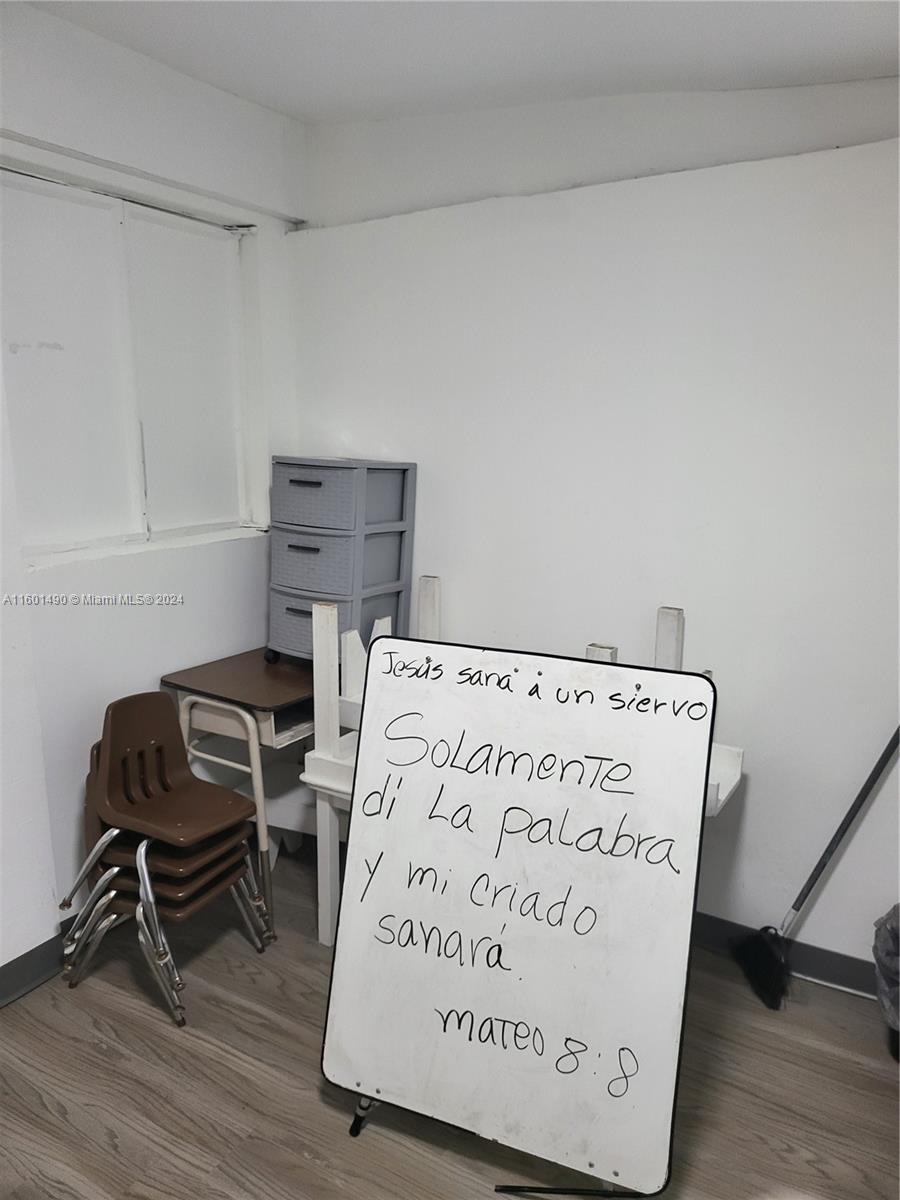 Jesús sana á un siervo
Solamente
di La palabra
y mi criado
sanará.
Mateo 8:8
A11601490 © Miami MLS® 2024